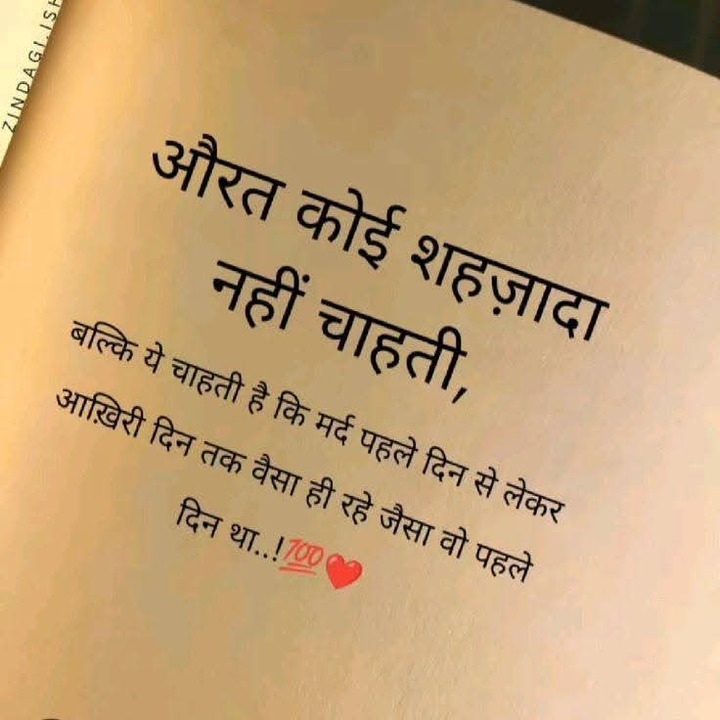 ZINDAGI.ISH
औरत कोई शहज़ादा
नहीं चाहती,
बल्कि ये चाहती है कि मर्द पहले दिन से लेकर
आख़िरी दिन तक वैसा ही रहे जैसा वो पहले
दिन था..!💯❤️